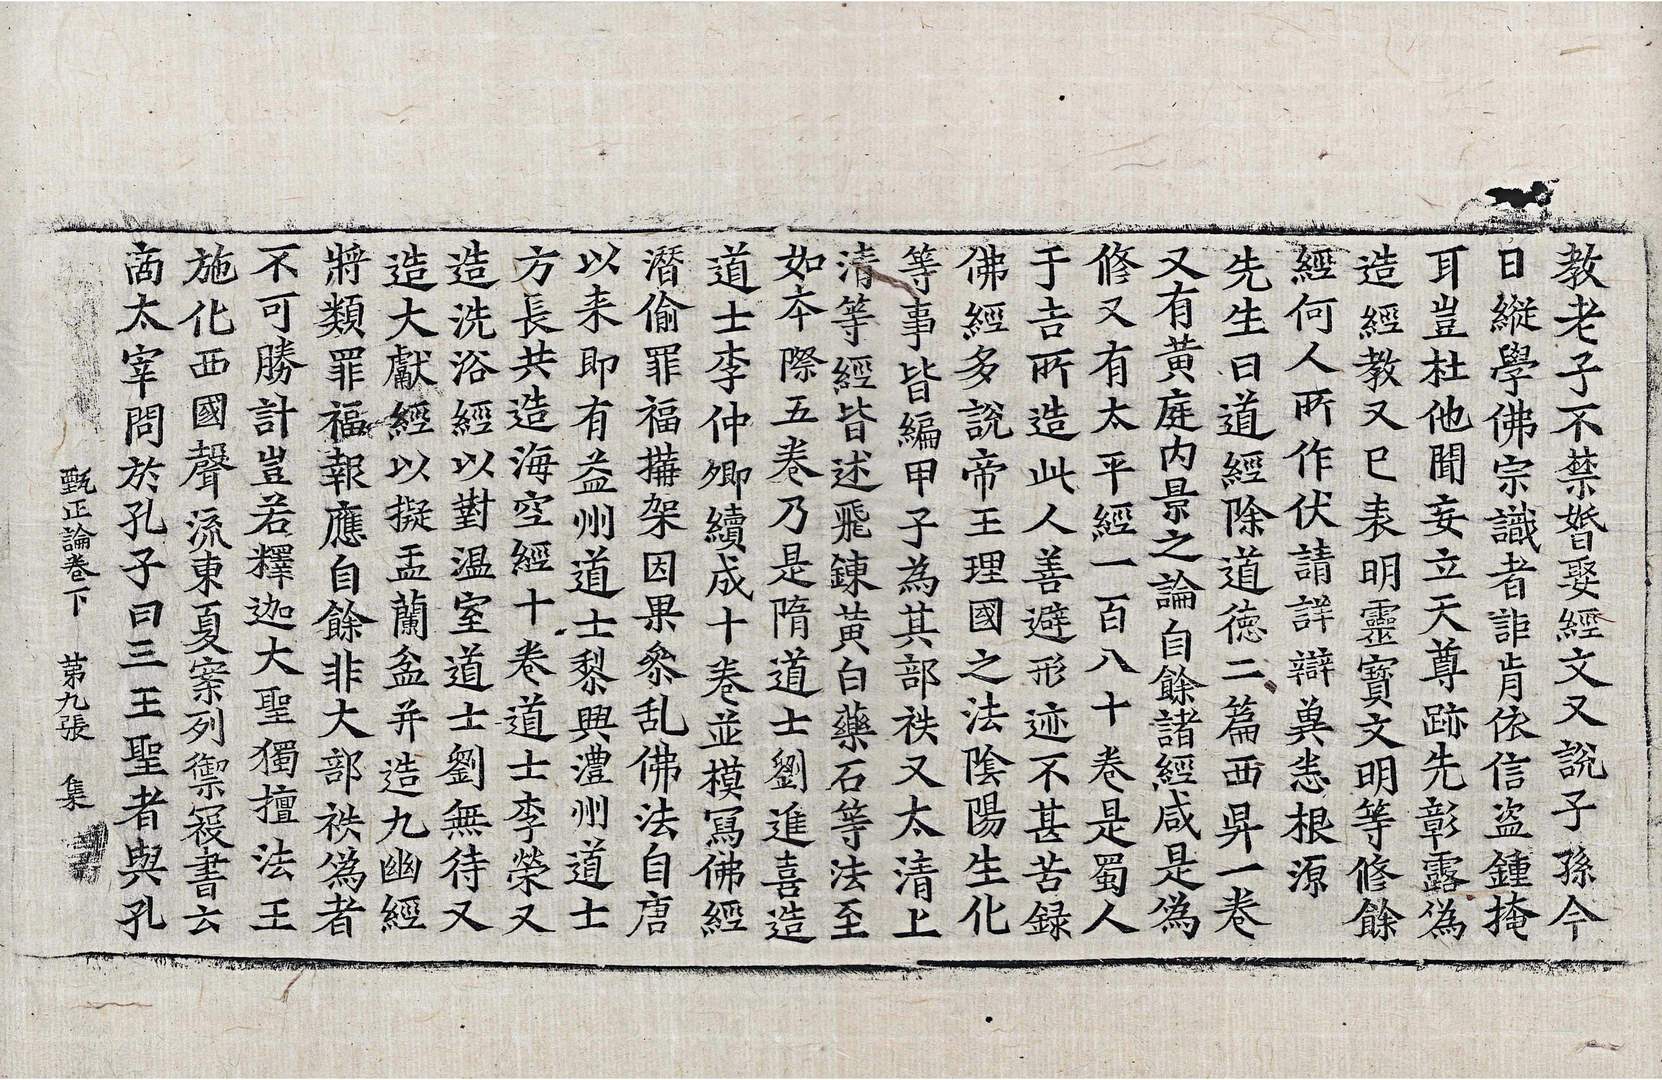 教老子不禁婚娶經文又說子孫今
日縱學佛宗識者詎肯依信盜鍾掩
耳豈杜他聞妄立天尊跡先彰露僞
造經教又已表明靈寶文明等修餘
經何人所作伏請詳辯冀悉根源
先生曰道經除道德二篇西昇一卷
又有黃庭内景之論自餘諸經咸是僞
修又有太平經一百八十卷是蜀人
于吉所造此人善避形迹不甚苦録
佛經多說帝王理國之法陰陽生化
等事皆編甲子為其部袟又太清上
清等經皆述飛鍊黃白藥石等法至
如夲際五卷乃是隋道士劉進喜造
道士李仲卿續成十卷並模寫佛經
潛偷罪福搆架因果叅乱佛法自唐
以来即有益州道士黎興澧州道士
方長共造海空經十卷道士李榮又
造洗浴經以對温室道士劉無待又
造大獻經以擬盂蘭盆并造九幽經
將類罪福報應自餘非大部袟僞者
不可勝計豈若釋迦大聖獨擅法王
施化西國聲流東夏案列禦寇書云
啇太宰問於孔子曰三王聖者與孔
甄正論卷下 第九張 集